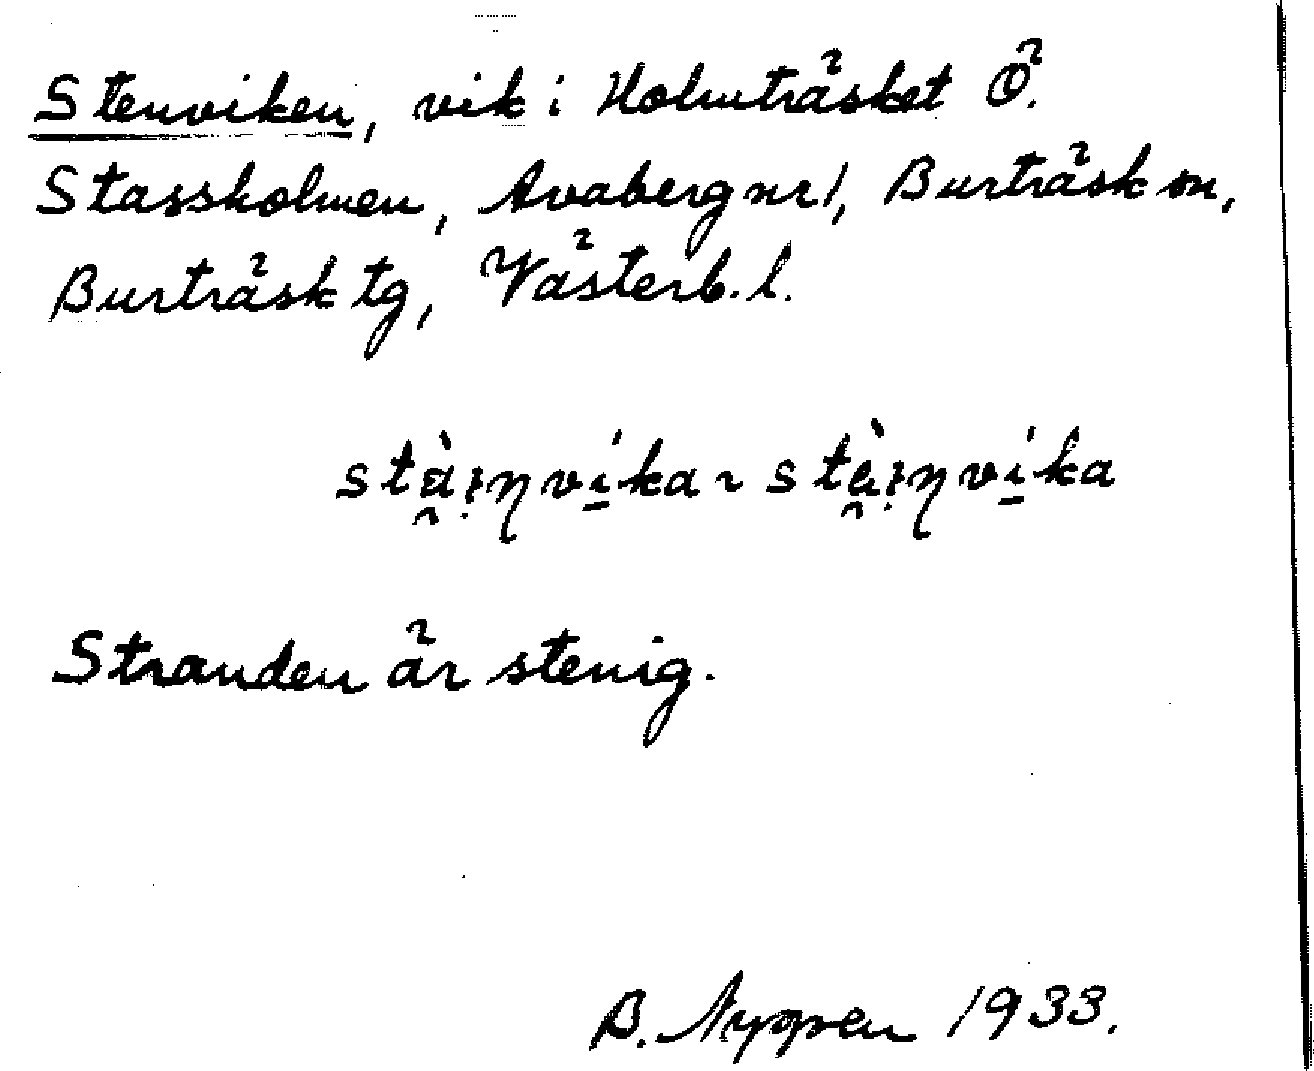 Stenviken, vik i Holmträsket Ö.
Stassholmen, Avaberg nr 1, Burträsk sn,
Burträsk tg, Västerb. l.
Stranden är stenig.
B. Nygren 1933.